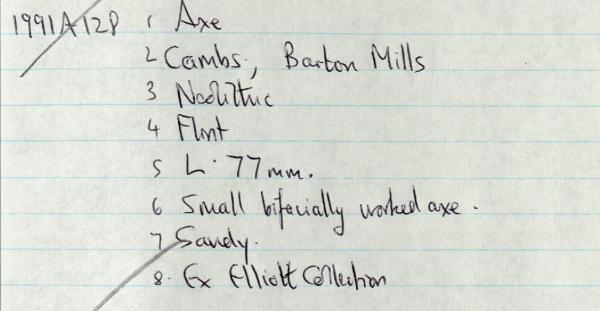 1991A128 1 Axe
2 Cambs, Barton Mills
3 Neolithic
4 Flint
5 L. 77mm.
6 Small bifacially worked axe.
7 Sandy.
8. Ex Elliott Collection